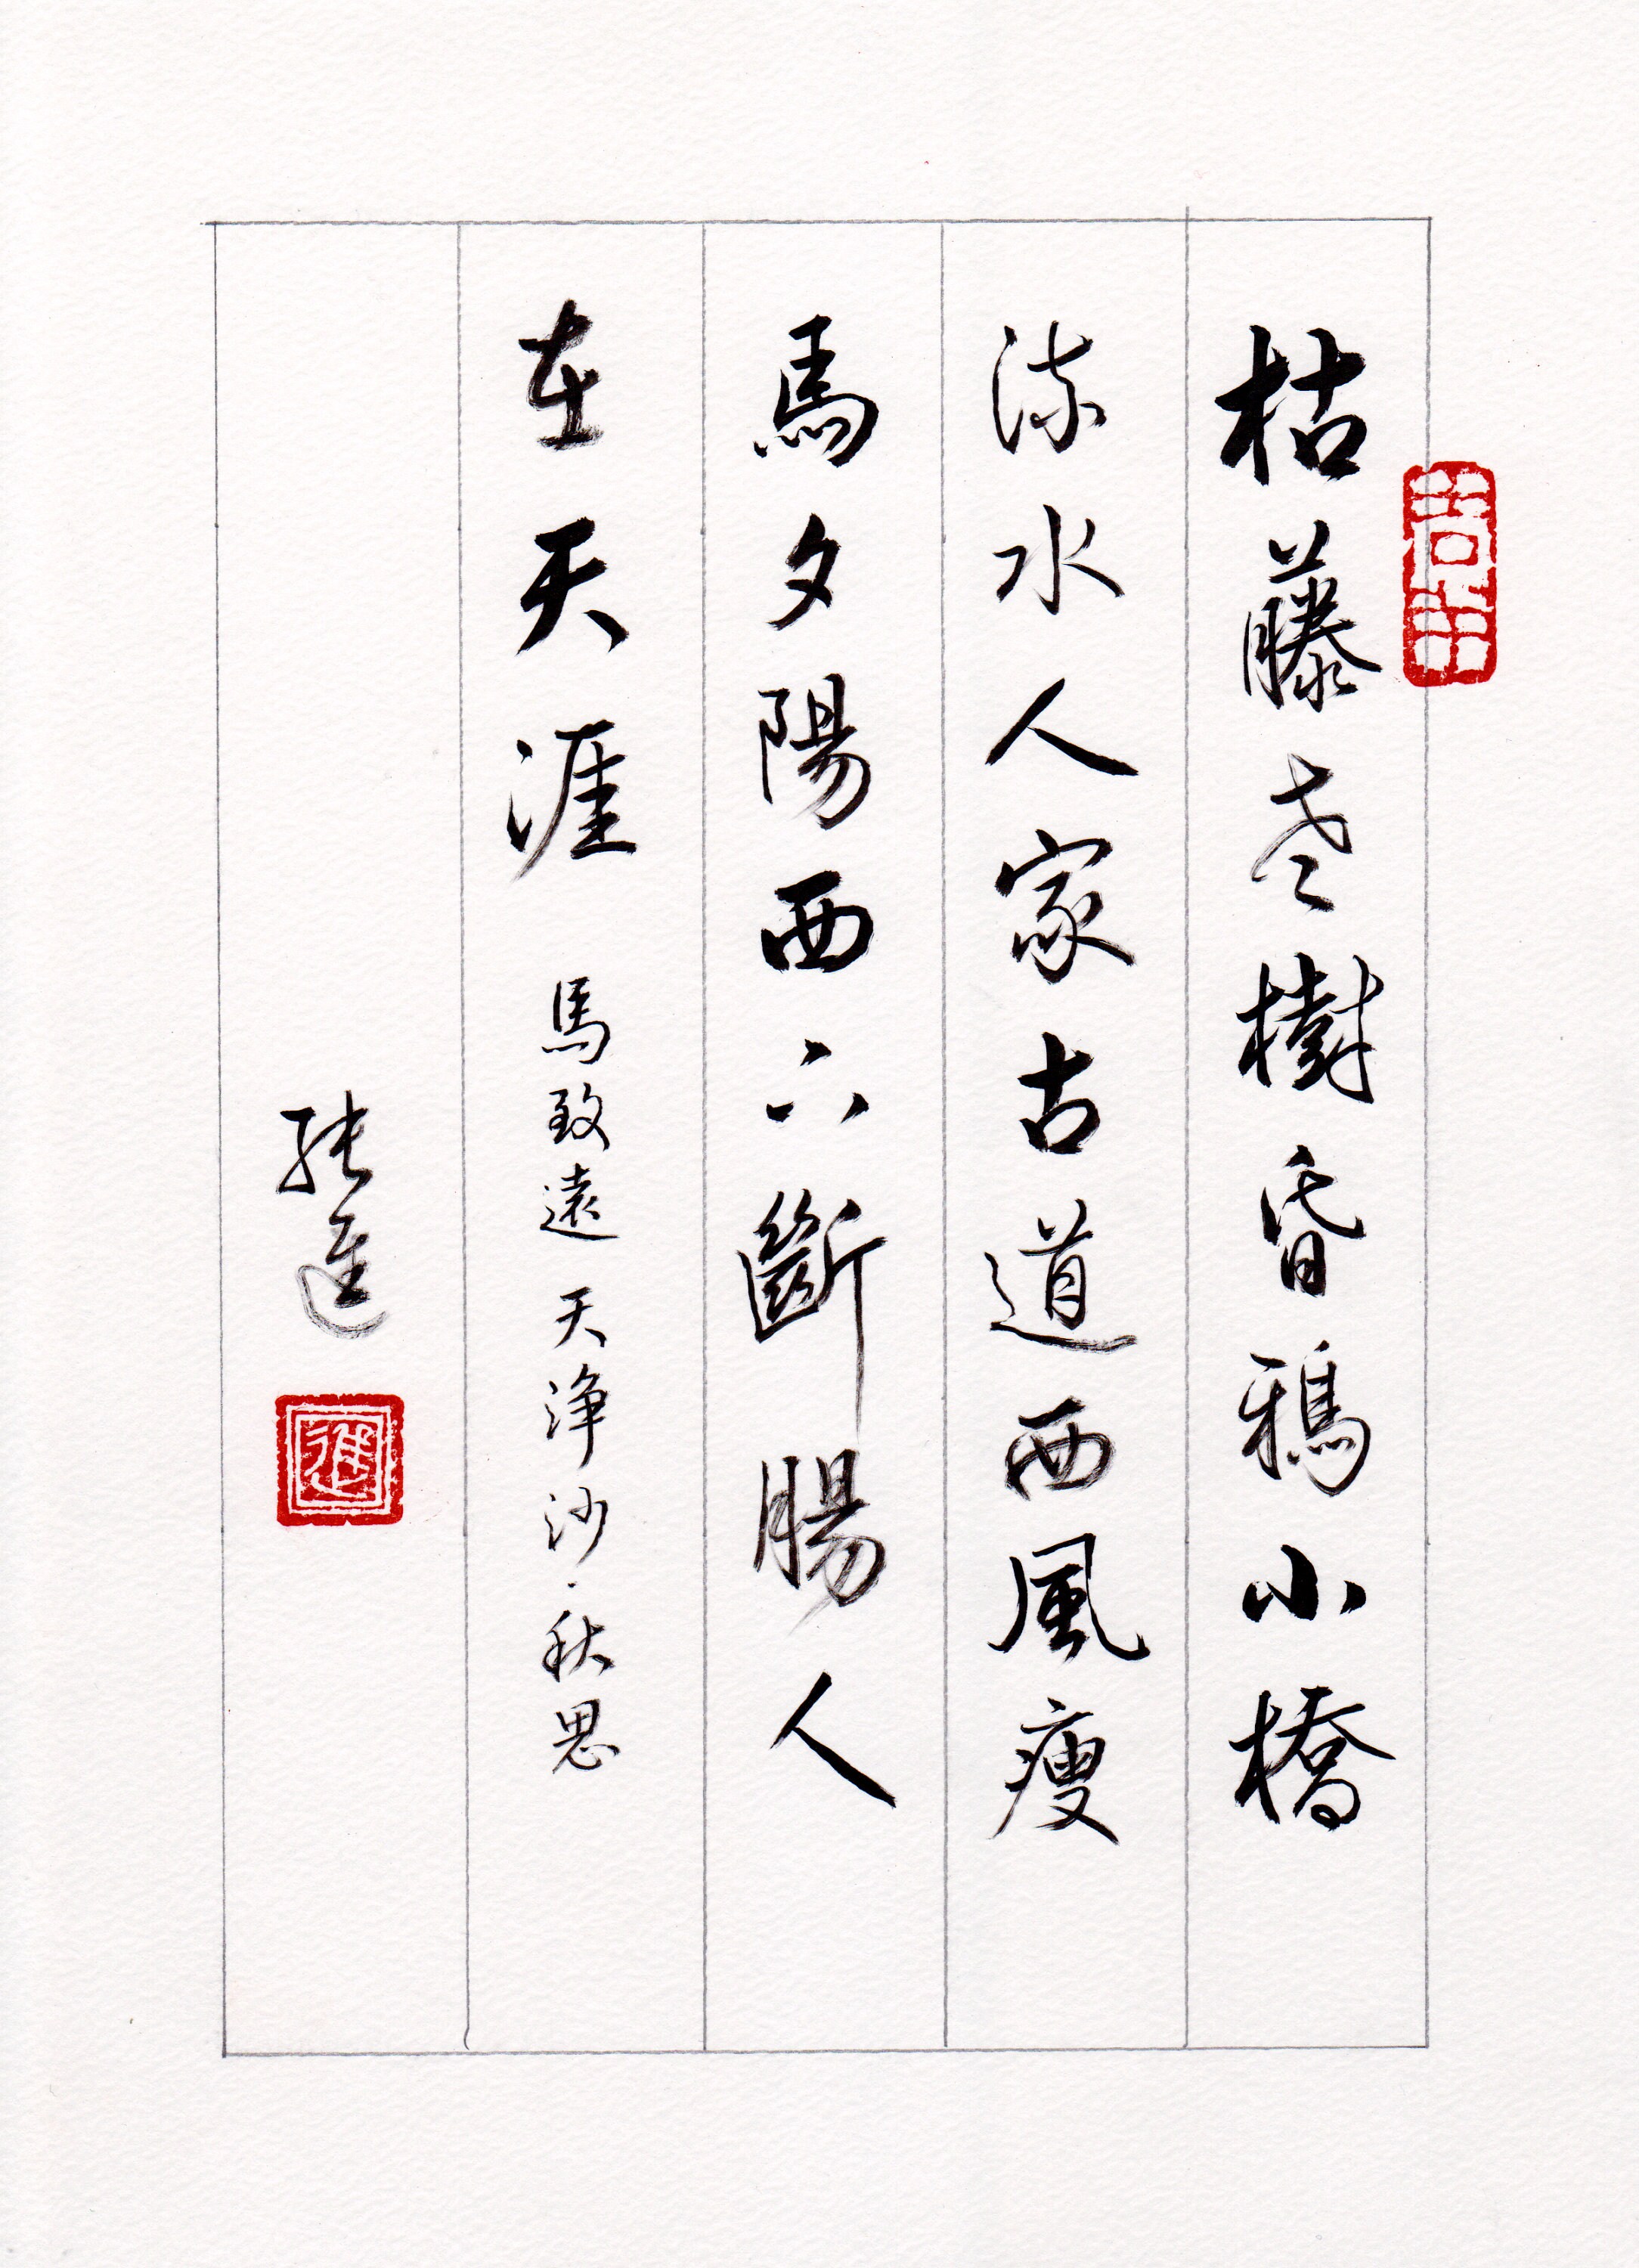 枯藤老樹昏鴉小橋
流水人家古道西風瘦
馬夕陽西下斷腸人
在天涯 馬致遠 天淨沙·秋思
張進
進